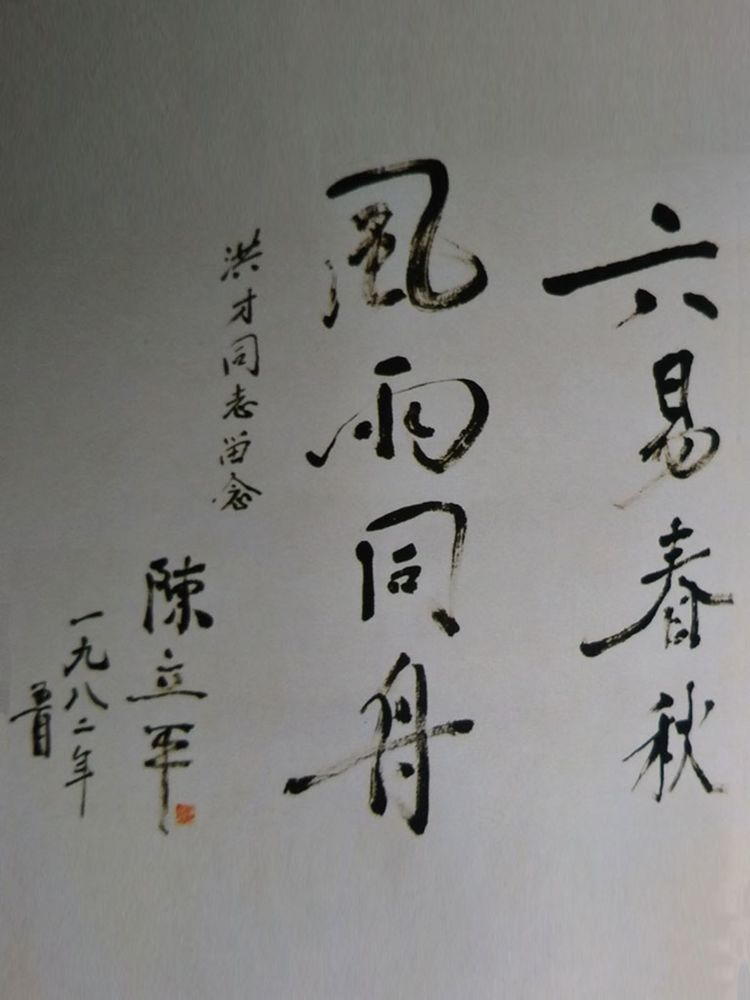 六易春秋
風雨同舟
洪才同志留念
陳立平
一九八二年